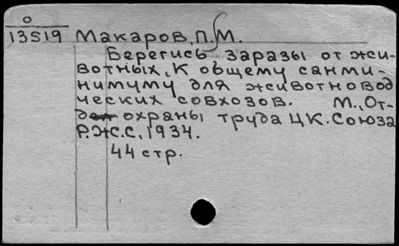 0
13519 Макаров, П. М.
Берегись заразы от жи-
вотных. К общему санми-
нимуму для животновод
ческих совхозов. М., От-
дел охраны труда ЦК. Союза
Р.Ж.С.С, 1934.
44 стр.